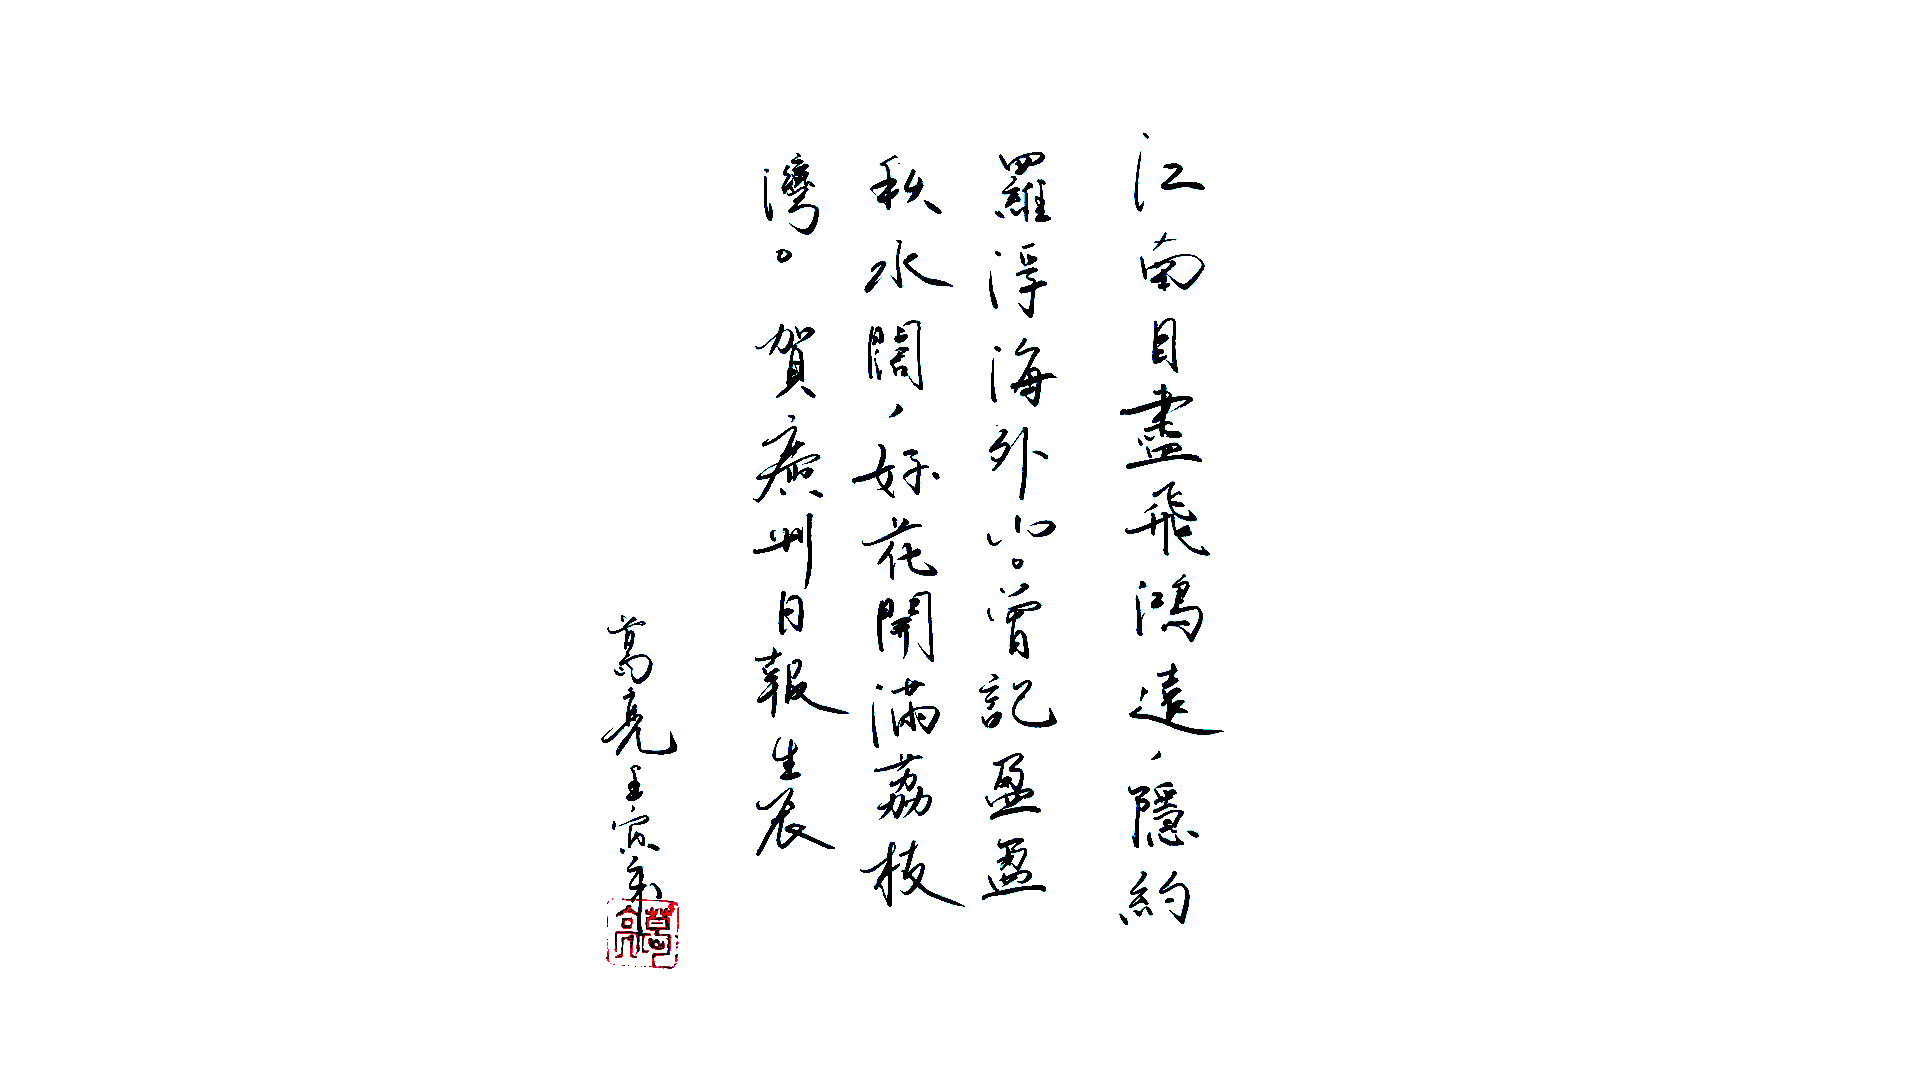 江南目盡飛鴻遠,隱約
羅浮海外山。曾記盈盈
秋水闊,好花開滿荔枝
灣。賀廣州日報生辰
葛亮壬寅秋
葛亮